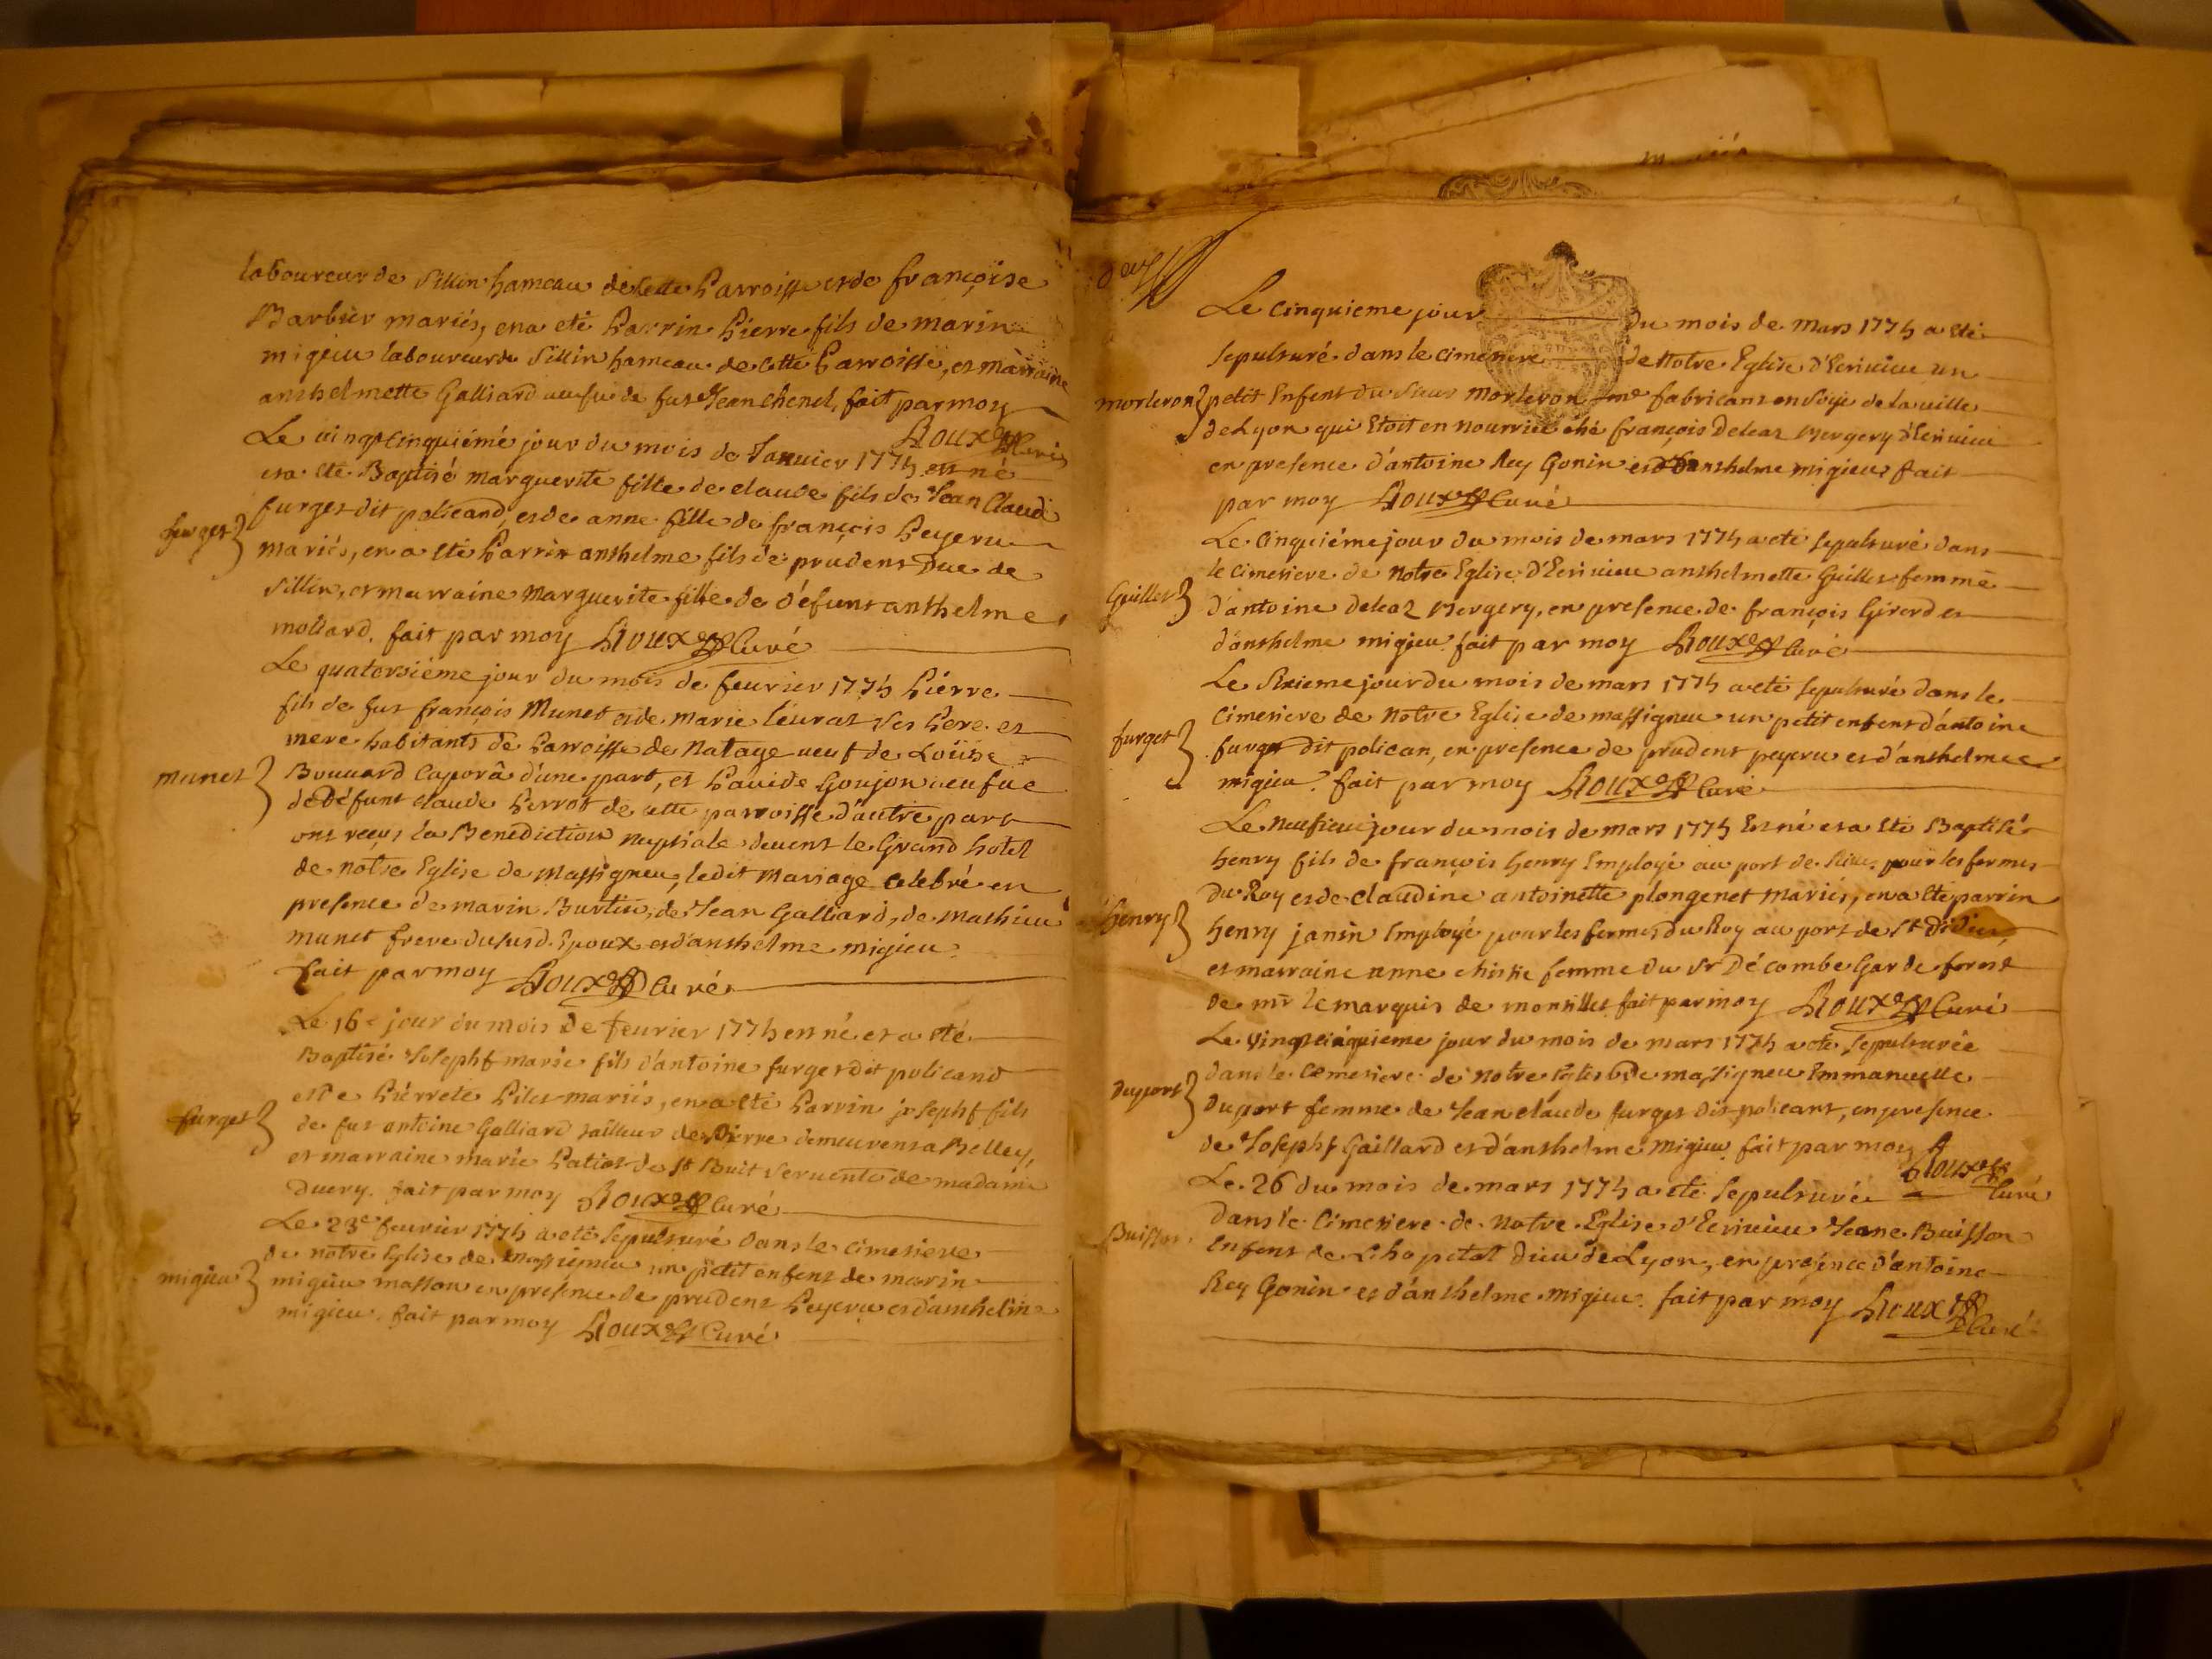 laboureur de Sillin hameau de cette Parroisse et de françoise
Barbier mariés, en a eté Parrin Pierre fils de marin
migieu laboureur de Sillin hameau de cette Parroisse, et marraine
anthelmette Galliard veufve de fut Jean Chenel, fait par moy
Roux Curé
Le vingt cinquiémé jour du mois de Janvier 1775 est né
et a eté Baptisé marguerite fille de claude fils de Jean Claude
furget
furget dit policand, et de anne fille de françois Peyeru
mariés, en a eté Parrin anthelme fils de prudent Duc de
Sillin, et marraine marguerite fille de défunt anthelme
mollard. fait par moy Roux Curé
Le quatorsiéme jour du mois de fevrier 1775 Piérre
fils de fut françois Munet et de marie Téurat ses Pere et
mere habitants de Parroisse de Natage veuf de Loüise
munet
Bouvard Caporâ d'une part, et Goujon veufve
de Défunt claude Perrot de cette parroisse d'autre part
ont reçus la Benediction nuptiale devent le Grand hotel
de notre Eglise de Massigneu, ledit Mariage celebré en
presence de marin Burtin, de Jean Galliard, de Mathieu
munet frere dususd. Epoux et d'anthelme migieu.
fait par moy Roux Curé
Le 16e jour du mois De fevrier 1775 est né et a eté
Baptisé Josepht marie fils d'antoine furget dit policand
et de Piérrete Pilet mariés, en a eté Parrin josepht fils
furget
de fut antoine Galliard tailleur de Pierre demeurent a Belley,
et marraine marie Patiot de St Buit servente de madame
Duery. fait par moy Roux Curé
Le 23e fevrier 1775 a eté sepulturé dans le cimetiere
de notre Eglise de Massigneu un petit enfent de marin
migieu
migieu masson en presence de prudent Peyeru et d'anthelme
migieu. fait par moy Roux Curé
deux
Le cinquieme jour du mois de mars 1775 a eté
sepulturé dans le cimetiere de Notre Eglise d'Ecrivieu un
morleron
petit Enfent du sieur Morleron fabricant en soye de la ville
de Lyon qui Etoit en nourrice ché françois Deleaz Mergery d'Ecrivieu
en presence d'antoine Rey Gonin et d'anthelme migieu fait
par moy Roux Curé
Le Cinquiéme jour du mois de mars 1775 a eté sepulturé dans
le cimetiere de Notre Eglise d'Ecrivieu anthelmette Guillet femme
Guillet
d'antoine Deleaz Mergery, en presence de françois Girerd et
d'anthelme migieu. fait par moy Roux Curé
Le Sixieme jour du mois de mars 1775 a eté sepulturé dans le
Cimetiere de Notre Eglise de massigneu un petit enfent d'antoine
furget
furget dit polican, en presence de prudent peyeru et d'anthelme
migieu. fait par moy Roux Curé
Le neufieme jour du mois de mars 1775 Est né et a eté Baptisé
henry fils de françois henry Employé au port de pour les fermes
Du Roy et de claudine antoinette plongenet mariés, en a eté parrin
henry
henry janin Employé pour les fermes du Roy au port de St Didier,
et marraine anne femme du Sr Décombe Garde forest
de mr le marquis de montillet fait par moy Roux Curé
Le vingt cinquieme jour du mois de mars 1775 a eté sepulturée
dans le Cemetiere de Notre Eglise de massigneu Emmanuelle
duport
duport femme de Jean claude furget dit policant, en presence
de Josepht Gaillard et d'anthelme migieu fait par moy
Roux Curé
Le 26 du mois de mars 1775 a eté sepulturée
Dans le Cimetiere de Notre Eglise d'Ecrivieu Jeane Buisson
Buisson
Enfent de L'hopetal Dieu de Lyon, en presence d'antoine
Rey Gonin et d'anthelme migieu. fait par moy Roux
Curé